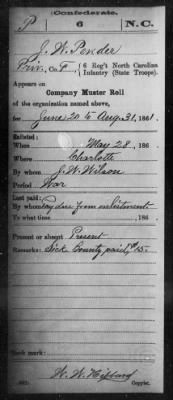 Confederate.
P 6 N.C.
J. W. Pender
Priv, Co. F, 6 Reg't North Carolina
Infantry (State Troops).
Appears on
Company Muster Roll
of the organization named above,
for June 20 to Aug. 31, 1861.
Enlisted:
When May 28, 186 .
Where Charlotte
By whom J. W. Wilson
Period War
Last paid:
By whom Pay due from enlistment
To what time , 186 .
Present or absent Present
Remarks: Sick County paid $15.
Book mark:
W. W.
Copyist.